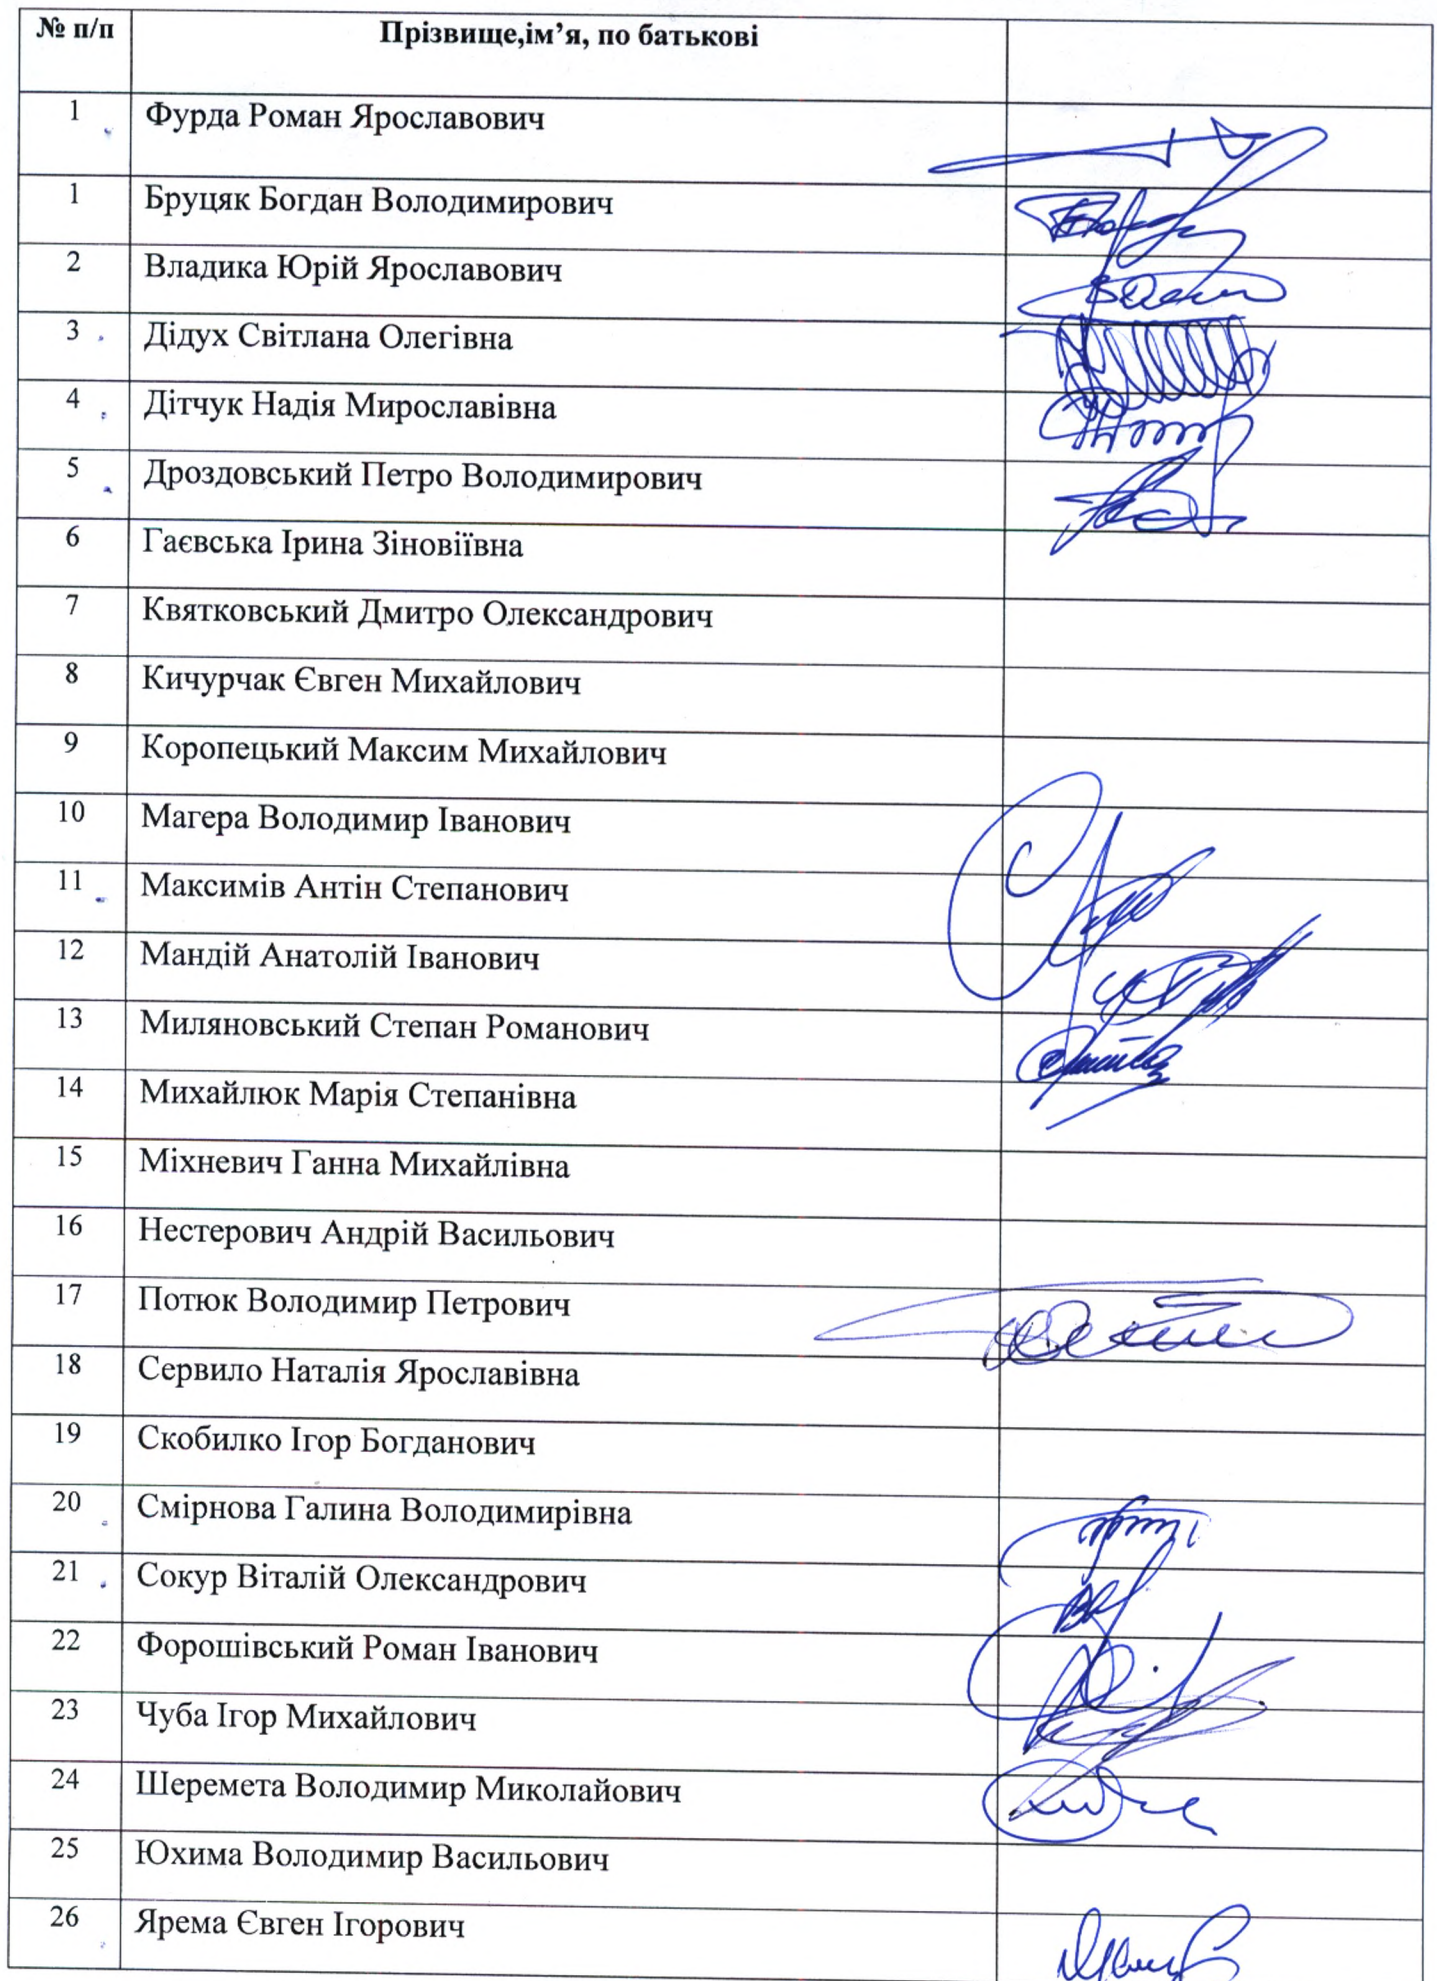 № п/п Прізвище,ім’я, по батькові
1 Фурда Роман Ярославович
1 Бруцяк Богдан Володимирович
2 Владика Юрій Ярославович
3 Дідух Світлана Олегівна
4 Дітчук Надія Мирославівна
5 Дроздовський Петро Володимирович
6 Гаєвська Ірина Зіновіївна
7 Квятковський Дмитро Олександрович
8 Кичурчак Євген Михайлович
9 Коропецький Максим Михайлович
10 Магера Володимир Іванович
11 Максимів Антін Степанович
12 Мандій Анатолій Іванович
13 Миляновський Степан Романович
14 Михайлюк Марія Степанівна
15 Міхневич Ганна Михайлівна
16 Нестерович Андрій Васильович
17 Потюк Володимир Петрович
18 Сервило Наталія Ярославівна
19 Скобилко Ігор Богданович
20 Смірнова Галина Володимирівна
21 Сокур Віталій Олександрович
22 Форошівський Роман Іванович
23 Чуба Ігор Михайлович
24 Шеремета Володимир Миколайович
25 Юхима Володимир Васильович
26 Ярема Євген Ігорович